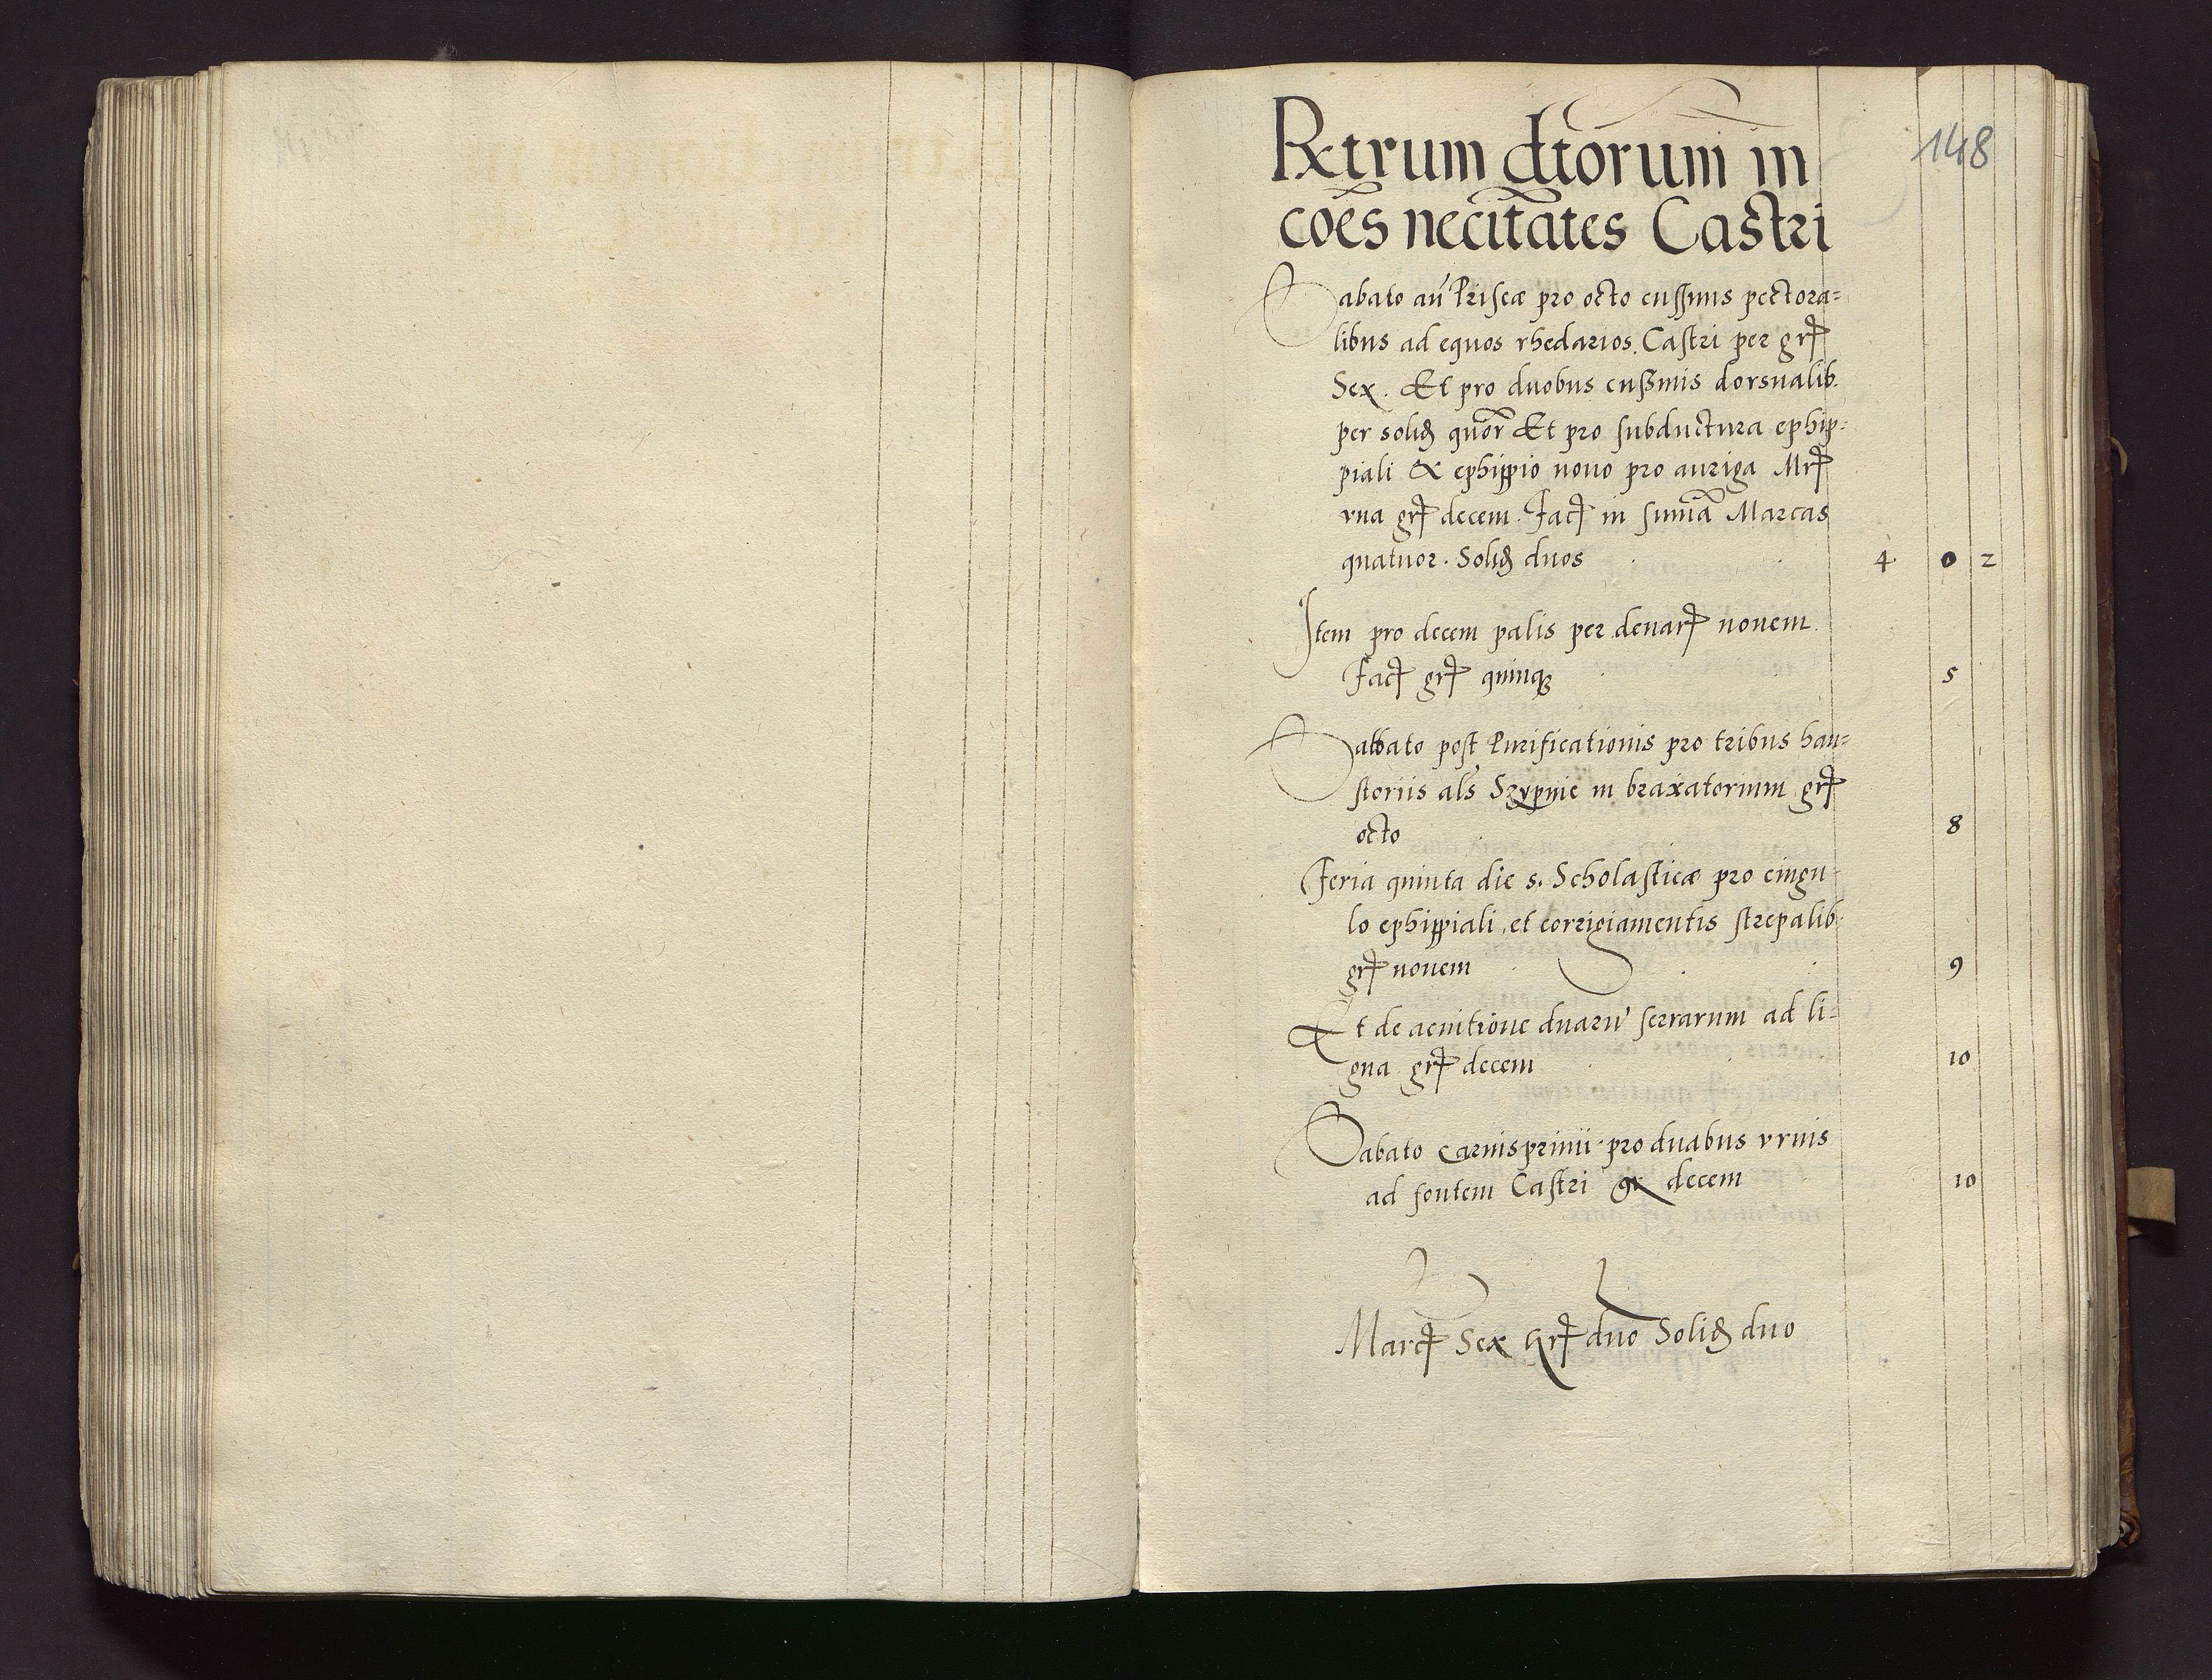 148
Rxtrum dtorum in
cões necitates Castri
Sabato añ Priscæ pro octo cussinis pectora=
libus ad equos rhedarios. Castri per gr
Sex. Et pro duobus cußinis dorsualib.
per solid quor Et pro subductura ephip=
piali & ephippio nouo pro auriga Mr
vna gr decem. Fac in summa Marcas
quatuor. Solid duos 4 0 2
Item pro decem palis per denar nouem.
Fac gr quinq 5
Sabbato post Purificationis pro tribus hau=
storiis als Szypnie in braxatorium gr
octo 8
Feria quinta die s. Scholasticæ pro cingu=
lo ephippiali, et corrigiamentis strepalib.
gr nouem 9
Et de acuitione duaru serrarum ad li=
gna gr decem 10
Sabato carnispriuii pro duabus vrnis
ad fontem Castri gr decem 10
Marc Sex gr duo Solid duo